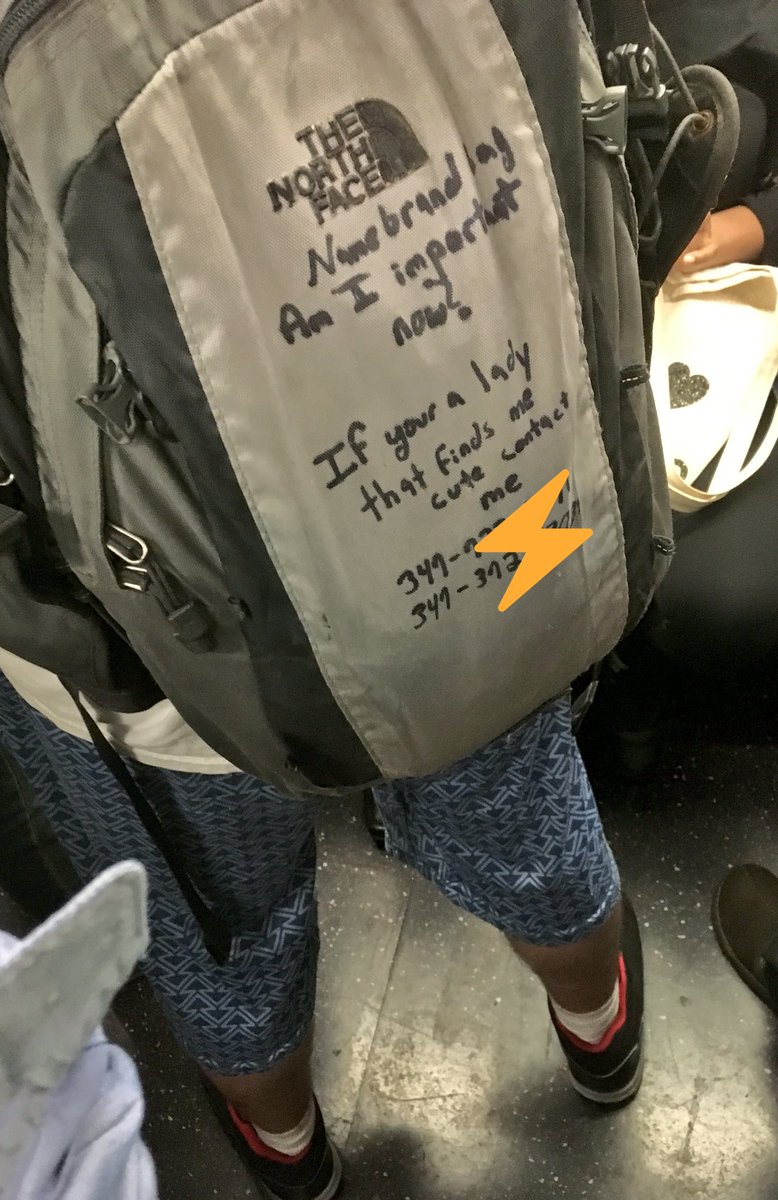 THE
NORTH
FACE
Name brand bag
Am I important
now?
If your a lady
that finds me
cute contact
me
347-
347-372